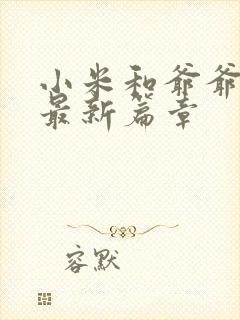 小米和爷爷
最新篇章
容默